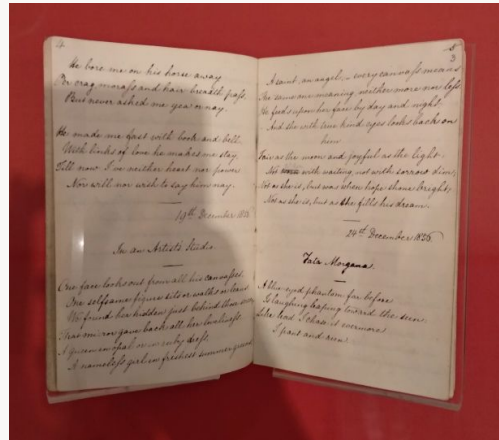 4
He bore me on his horse away
By crag morass and hair breadth pass,
But never asked me yea or nay.
He made me fast with book and bell,
With links of love he makes me stay,
Till now I've neither heart nor power
Nor will nor wish to say him nay.
19th December 1856
In an Artist's Studio.
One face looks out from all his canvasses,
One selfsame figure sits or walks or leans
We found her hidden just behind those screens
That mirror gave back all her loveliness.
A queen in opal or in ruby dress,
A nameless girl in freshest summer greens
5
3
A saint an angel, – every canvass means
The same one meaning neither more nor less
He feeds upon her face by day and night,
And she with true kind eyes looks back on
him
Fair as the moon and joyful as the light:
Not with waiting, not with sorrow dim,
Not as she is, but was when hope shone bright;
Not as she is, but as she fills his dream.
24th December 1856
Fata Morgana.
A blue eyed phantom far before
Is laughing leaping toward the sun.
Like lead I chase it evermore
I pant and run.